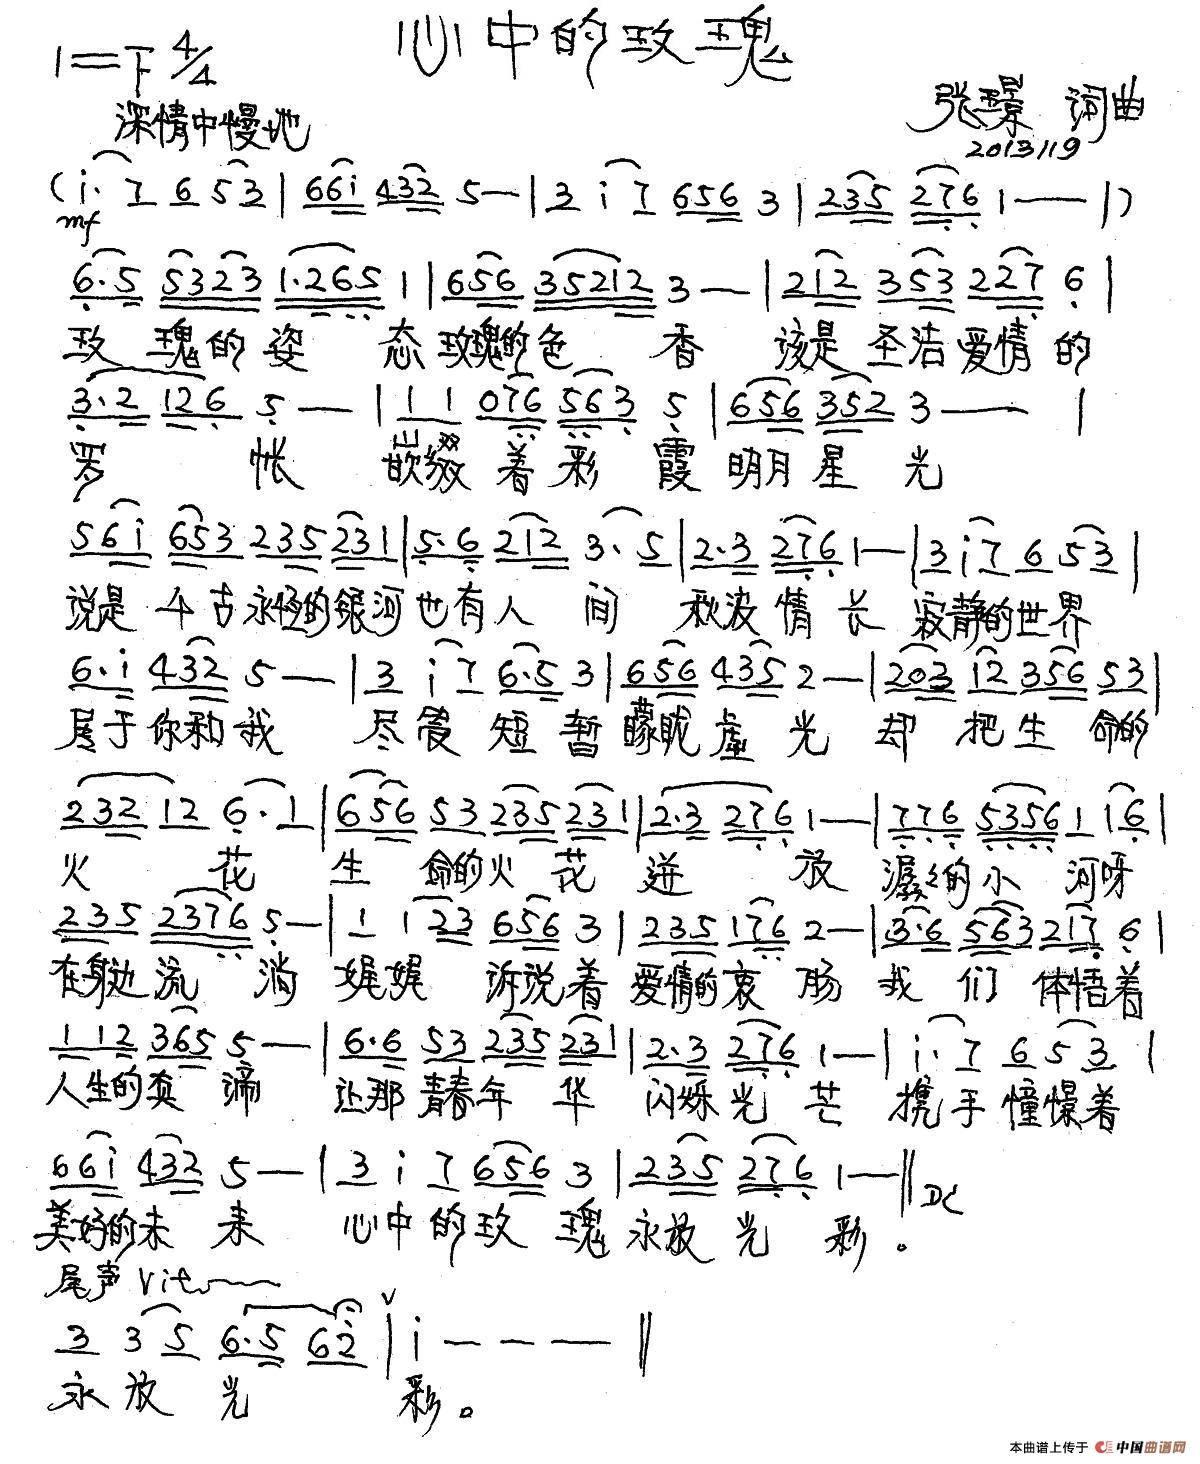 心中的玫瑰
1=F 4/4
深情中慢地
张景 词曲
2013119
(i· 7 6 5 3 | 6 6 i 4 3 2 5 — | 3 i 7 6 5 6 3 | 2 3 5 2 7 6 1 — — | )
mf
6·5 5323 1·265 1 | 656 35212 3 — | 212 353 227 6 |
玫 瑰的姿 态玫瑰的色 香 该是圣洁爱情的
3·2 126 5 — | 1 1 076 563 5 | 656 352 3 — — |
罗 帐 嵌缀着彩 霞明月星光
56i 653 235 231 | 5·6 212 3·5 | 2·3 276 1 — | 3 i 7 6 53 |
说是个古永恒的银河也有人 间 秋波情长 寂静的世界
6·i 432 5 — | 3 i 7 6·5 3 | 656 435 2 — | 203 12 356 53 |
属于你和我 尽管短暂朦胧虚光 却 把生 命的
232 12 6·1 | 656 53 235 231 | 2·3 276 1 — | 776 5356 1 16 |
火 花 生 命的火花迸 放 潺々的小 河呀
235 2376 5 — | 1 1 23 656 3 | 235 176 2 — | 3·6 563 217 6 |
在身边流 淌 娓娓 诉说着爱情的衷肠 我 们 体悟着
1 12 365 5 — | 6·6 53 235 231 | 2·3 276 1 — | i· 7 6 5 3 |
人生的真谛 让那青春年 华 闪烁光芒 携手憧憬着
66i 432 5 — | 3 i 7 656 3 | 235 276 1 — ‖ DC
美好的未来 心中的玫瑰永放光彩。
尾声 rit.
3 3 5 6·5 62 | i — — — ‖
永放 光 彩。
本曲谱上传于 中国曲谱网